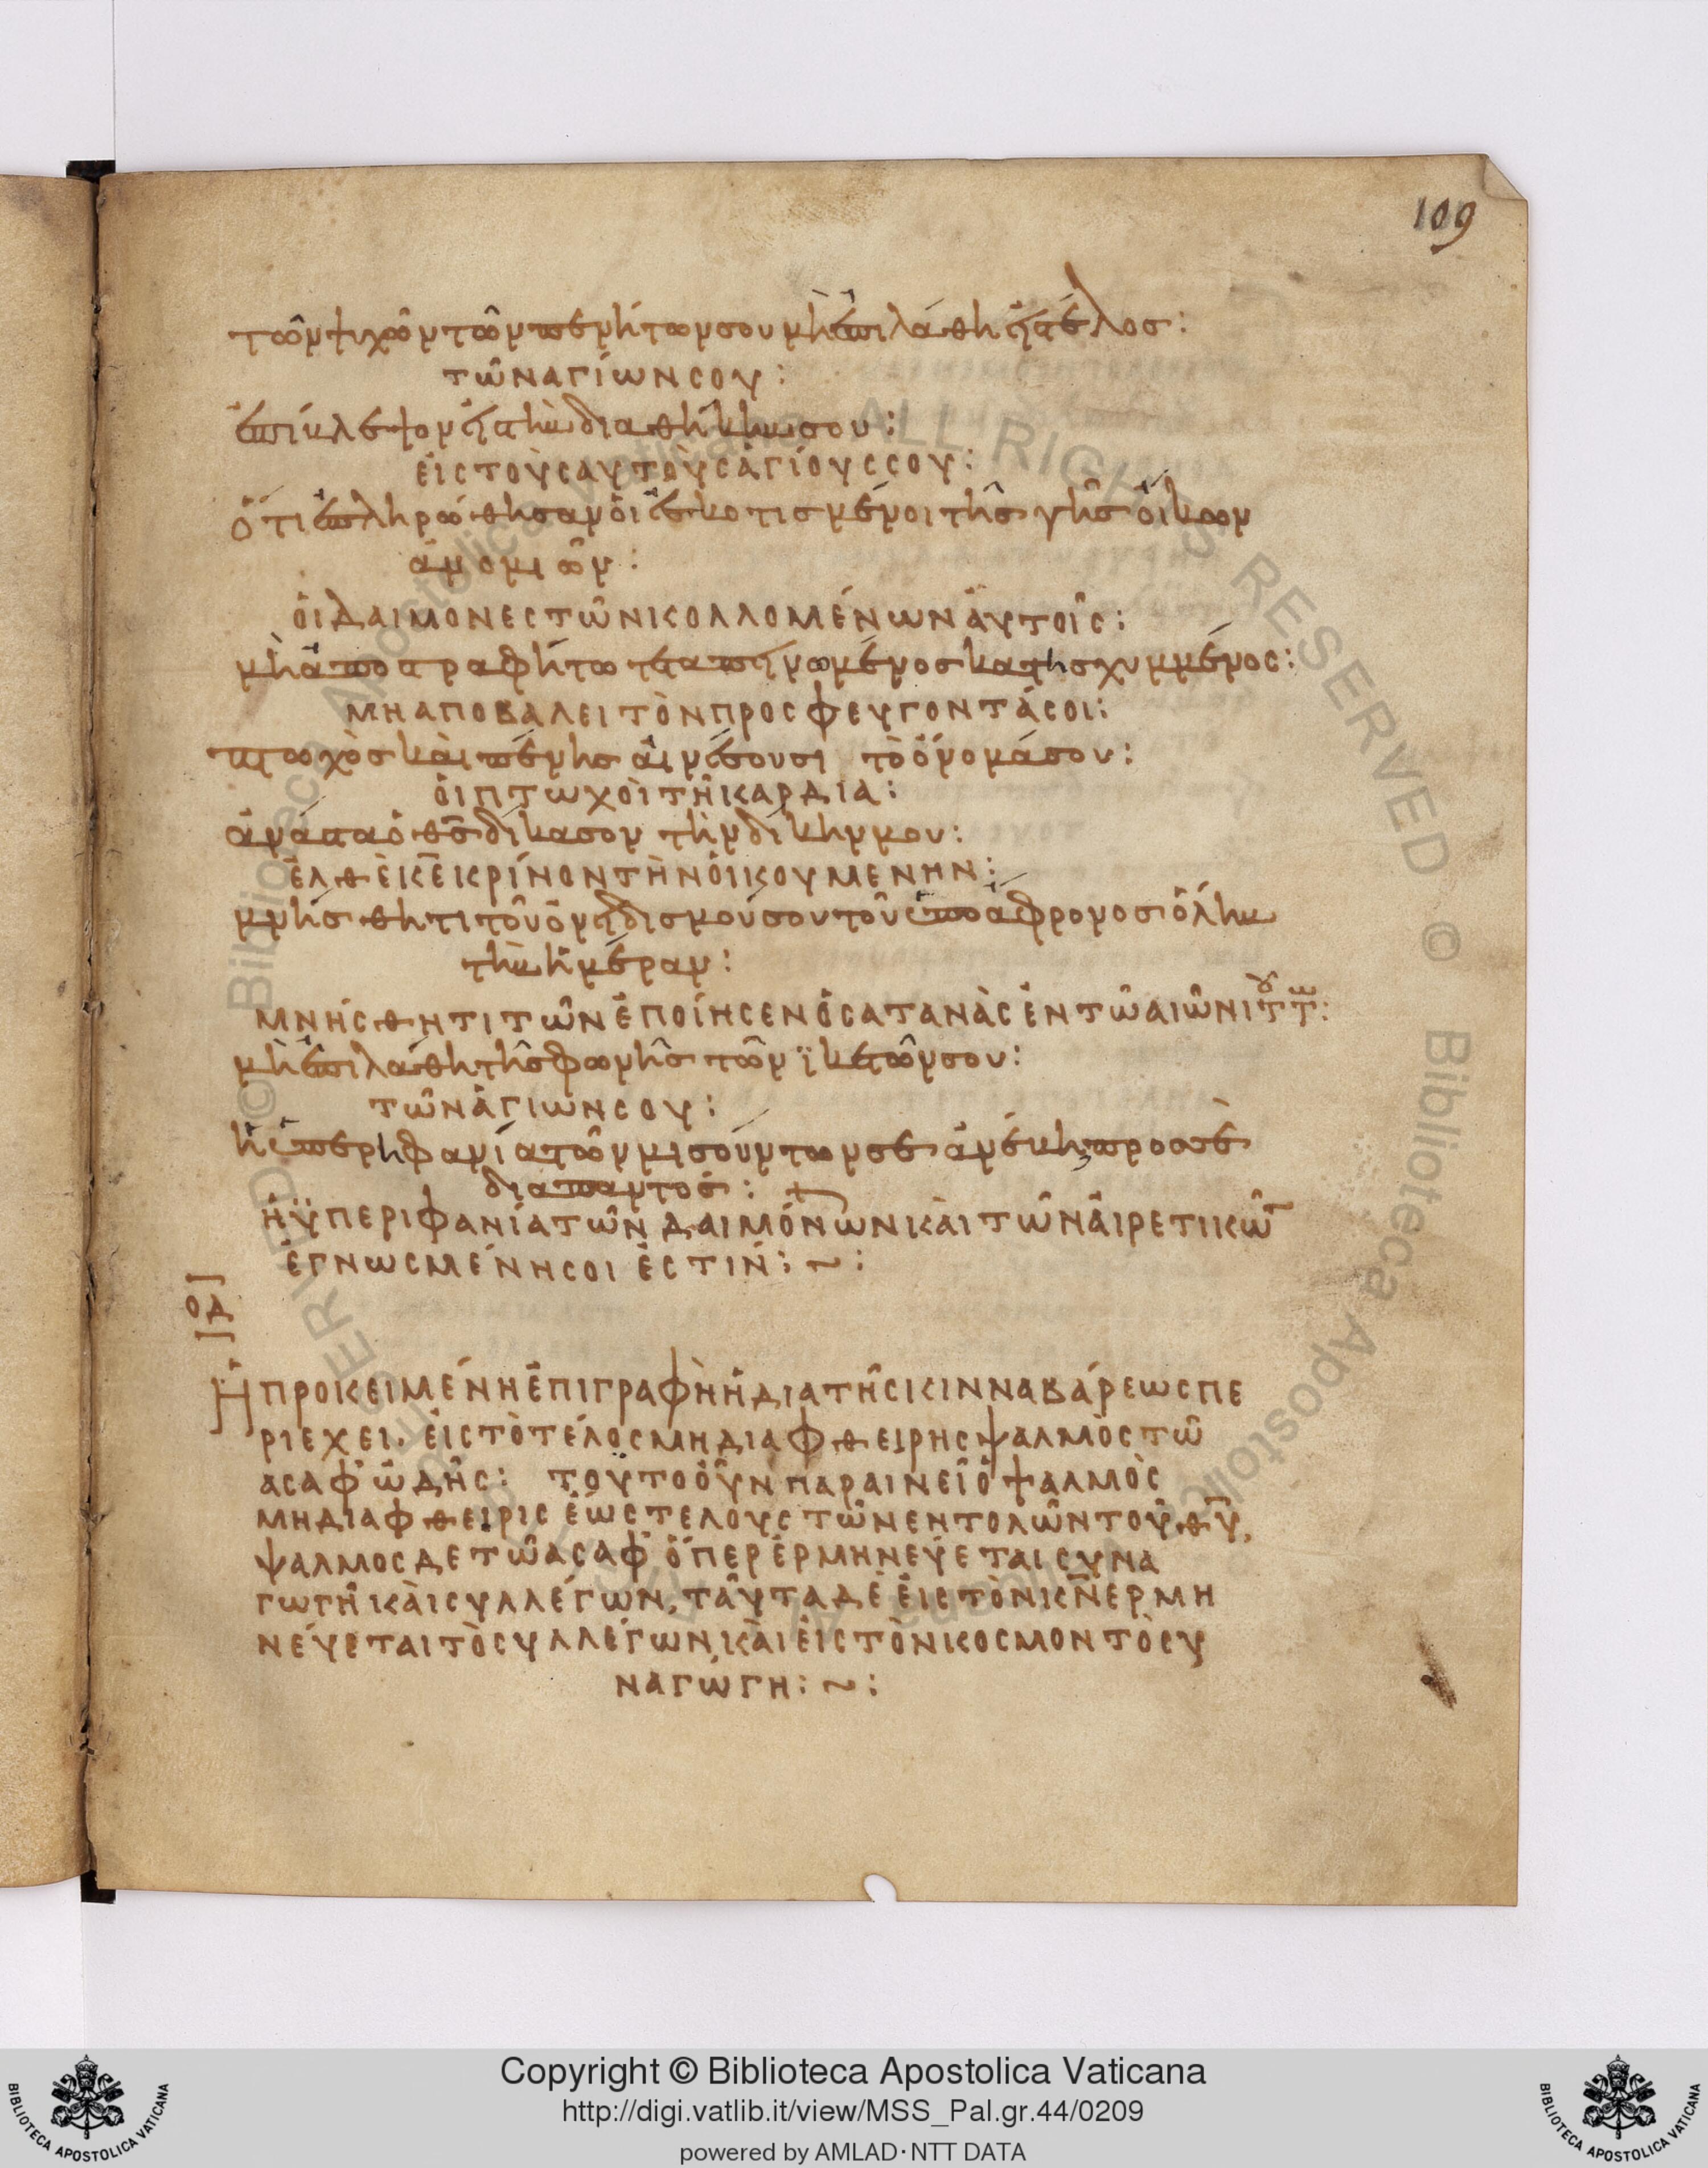 109
τῶν ψυχῶν τῶν πενήτων σου μὴ ἐπιλάθη εἰς τέλος:
τῶν αγίων σου:
ἐπίκλεψον εἰς τὴν διαθήκην σου:
εἰς τοὺς αυτοὺς ἁγίους σου:
ὅτι ἐπληρώθησαν ὁι ἐσκοτισμένοι τῆς γῆς οἴκων
ἀνομιῶν:
ὁι δαιμονες τῶνικολλομένων ἀυτοῖς:
μὴ ἀποστραφήτω τεταπεινωμένος κατησχυμμένος:
μη αποβαλει τὸν προσφευγοντά σοι:
πτωχὸς καὶ πένης αἰνέσουσι τὸ ὄνομά σου:
ὁι πτωχὸι τῆ καρδια:
ἀνάστα ὁ θς δίκασον τὴν δίκην μου:
ἐλθὲ κε κρίνον τὴν ὀικουμενην:
μνήσθητι τοῦ ὀνειδισμού σου τοῦ ὑπο αφρονος ὅλην
τὴν ἡμέραν:
μνήσθητι τῶν ἐποίησεν ὁ σατανὰς ἐν τῶ αιῶνι του τω:
μὴ ἐπιλάθη τῆς φωνῆς τῶν ϊκετῶν σου:
τῶν ἁγιων σου:
ἡ ὑπερηφανία τῶν μισούντων σε ἀνέκη προς σὲ
διαπαντός:
ἡ ϋπεριφανία τῶν δαιμόνων κὰι τῶν ἁιρετικῶ
ἐγνωσμένη σοι ἐστιν: ~:
οδ
Ἡ προκειμένη ἐπιγραφὴ ἡ δια τῆς κινναβάρεως πε
ριεχει. ἐις τὸ τέλος μη διαφθειρης ψαλμὸς τῶ
ασαφ ὠδῆς: τουτο ὀῦν παραινεῖ ὁ ψαλμὸς
μη διαφθειρις ἑως τελους τῶν εντολῶν τοῦ θυ,
ψαλμος δε τῶ ασαφ ὅπερ ἑρμηνεύεται συνα
γωγὴ κὰι συλλέγων, ταῦτα δὲ ἐις τὸν κν ερμη
νεύεται τὸ συλλέγων κὰι ἐις τὸν κοσμον τὸ συ
ναγώγη: ~:
Copyright © Biblioteca Apostolica Vaticana
http://digi.vatlib.it/view/MSS_Pal.gr.44/0209
powered by AMLAD·NTT DATA
BIBLIOTECA APOSTOLICA VATICANA
BIBLIOTECA APOSTOLICA VATICANA